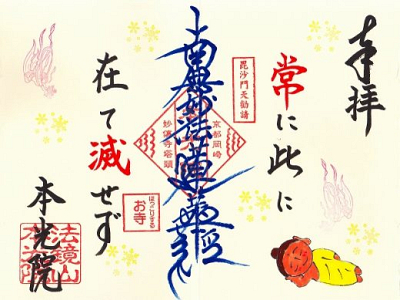 奉拝
常に此に
毘沙門天勧請
京都岡崎
南無妙法蓮華経
妙傳寺塔頭
在て滅せず
ほっこりする
お寺
本光院
法鏡山